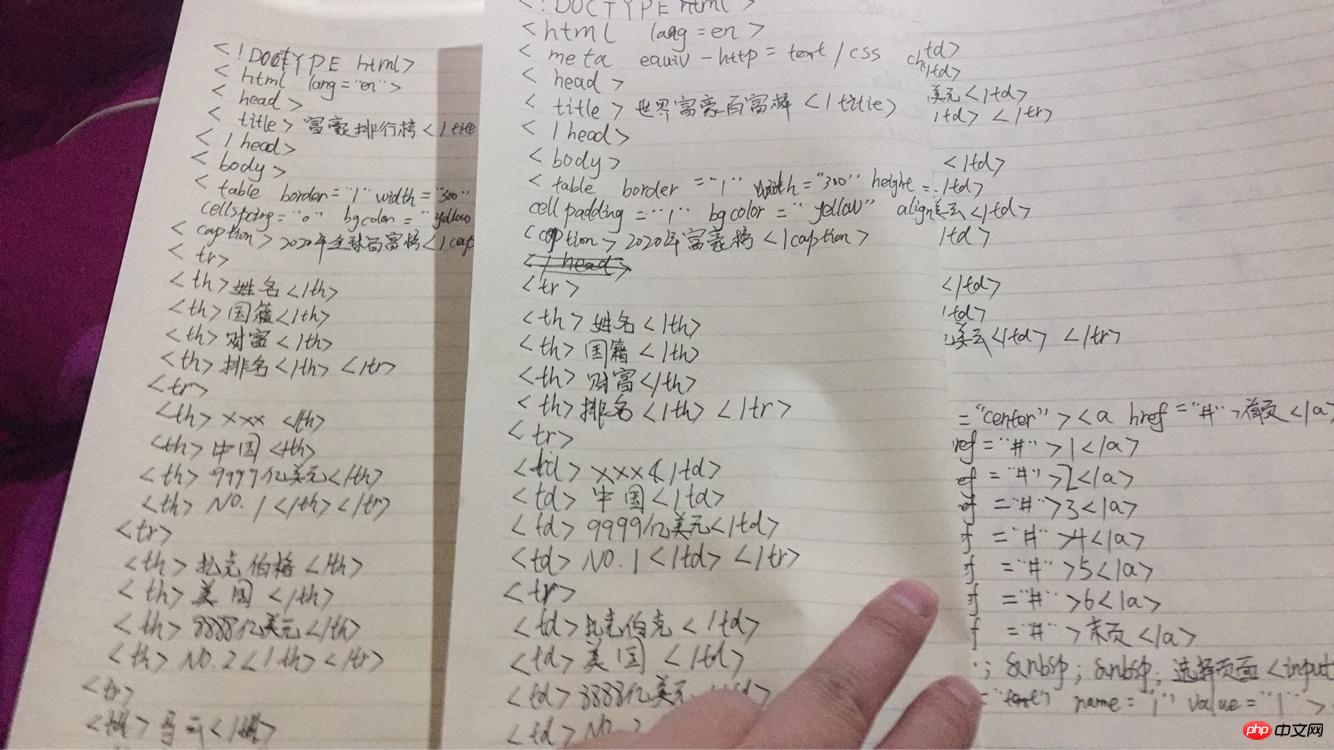 <!DOCTYPE html>
<html lang="en">
<head>
<title>富豪排行榜</title
</head>
<body>
<table border="1" width="300"
cellspcing="0" bgcolor="yellow
<caption>2020年全球百富榜</cap
<tr>
<th>姓名</th>
<th>国籍</th>
<th>财富</th>
<th>排名</th></tr>
<tr>
<th>xxx</th>
<th>中国</th>
<th>9999亿美元</th>
<th>NO.1</th></tr>
<tr>
<th>扎克伯格</th>
<th>美国</th>
<th>8888亿美元</th>
<th>NO.2</th></tr>
<tr>
</th>
<!DOCTYPE html>
<html lang=en>
<meta equiv-http=text/css ch
<head>
<title>世界富豪百富榜</title>
</head>
<body>
<table border="1" width="300" height=
cellpadding="1" bgcolor="yellow" align
<caption>2020年富豪榜</caption>
</head>
<tr>
<th>姓名</th>
<th>国籍</th>
<th>财富</th>
<th>排名</th></tr>
<tr>
<td>xxx</td>
<td>中国</td>
<td>9999亿美元</td>
<td>NO.1</td></tr>
<tr>
<td>扎克伯克</td>
<td>美国</td>
<td>8888亿美元</td>
<td>NO.2
td>
/td>
美元</td>
/td></tr>
</td>
/td>
美元</td>
/td>
</td>
/td>
美元</td></tr>
="center"><a href="#">首页</a>
ref="#">1</a>
ef="#">2</a>
ef="#">3</a>
f="#">4</a>
f="#">5</a>
f="#">6</a>
f="#">末页</a>
; &nbsp; &nbsp; 选择页面<input
="text" name="1" value="1">
php 中文网